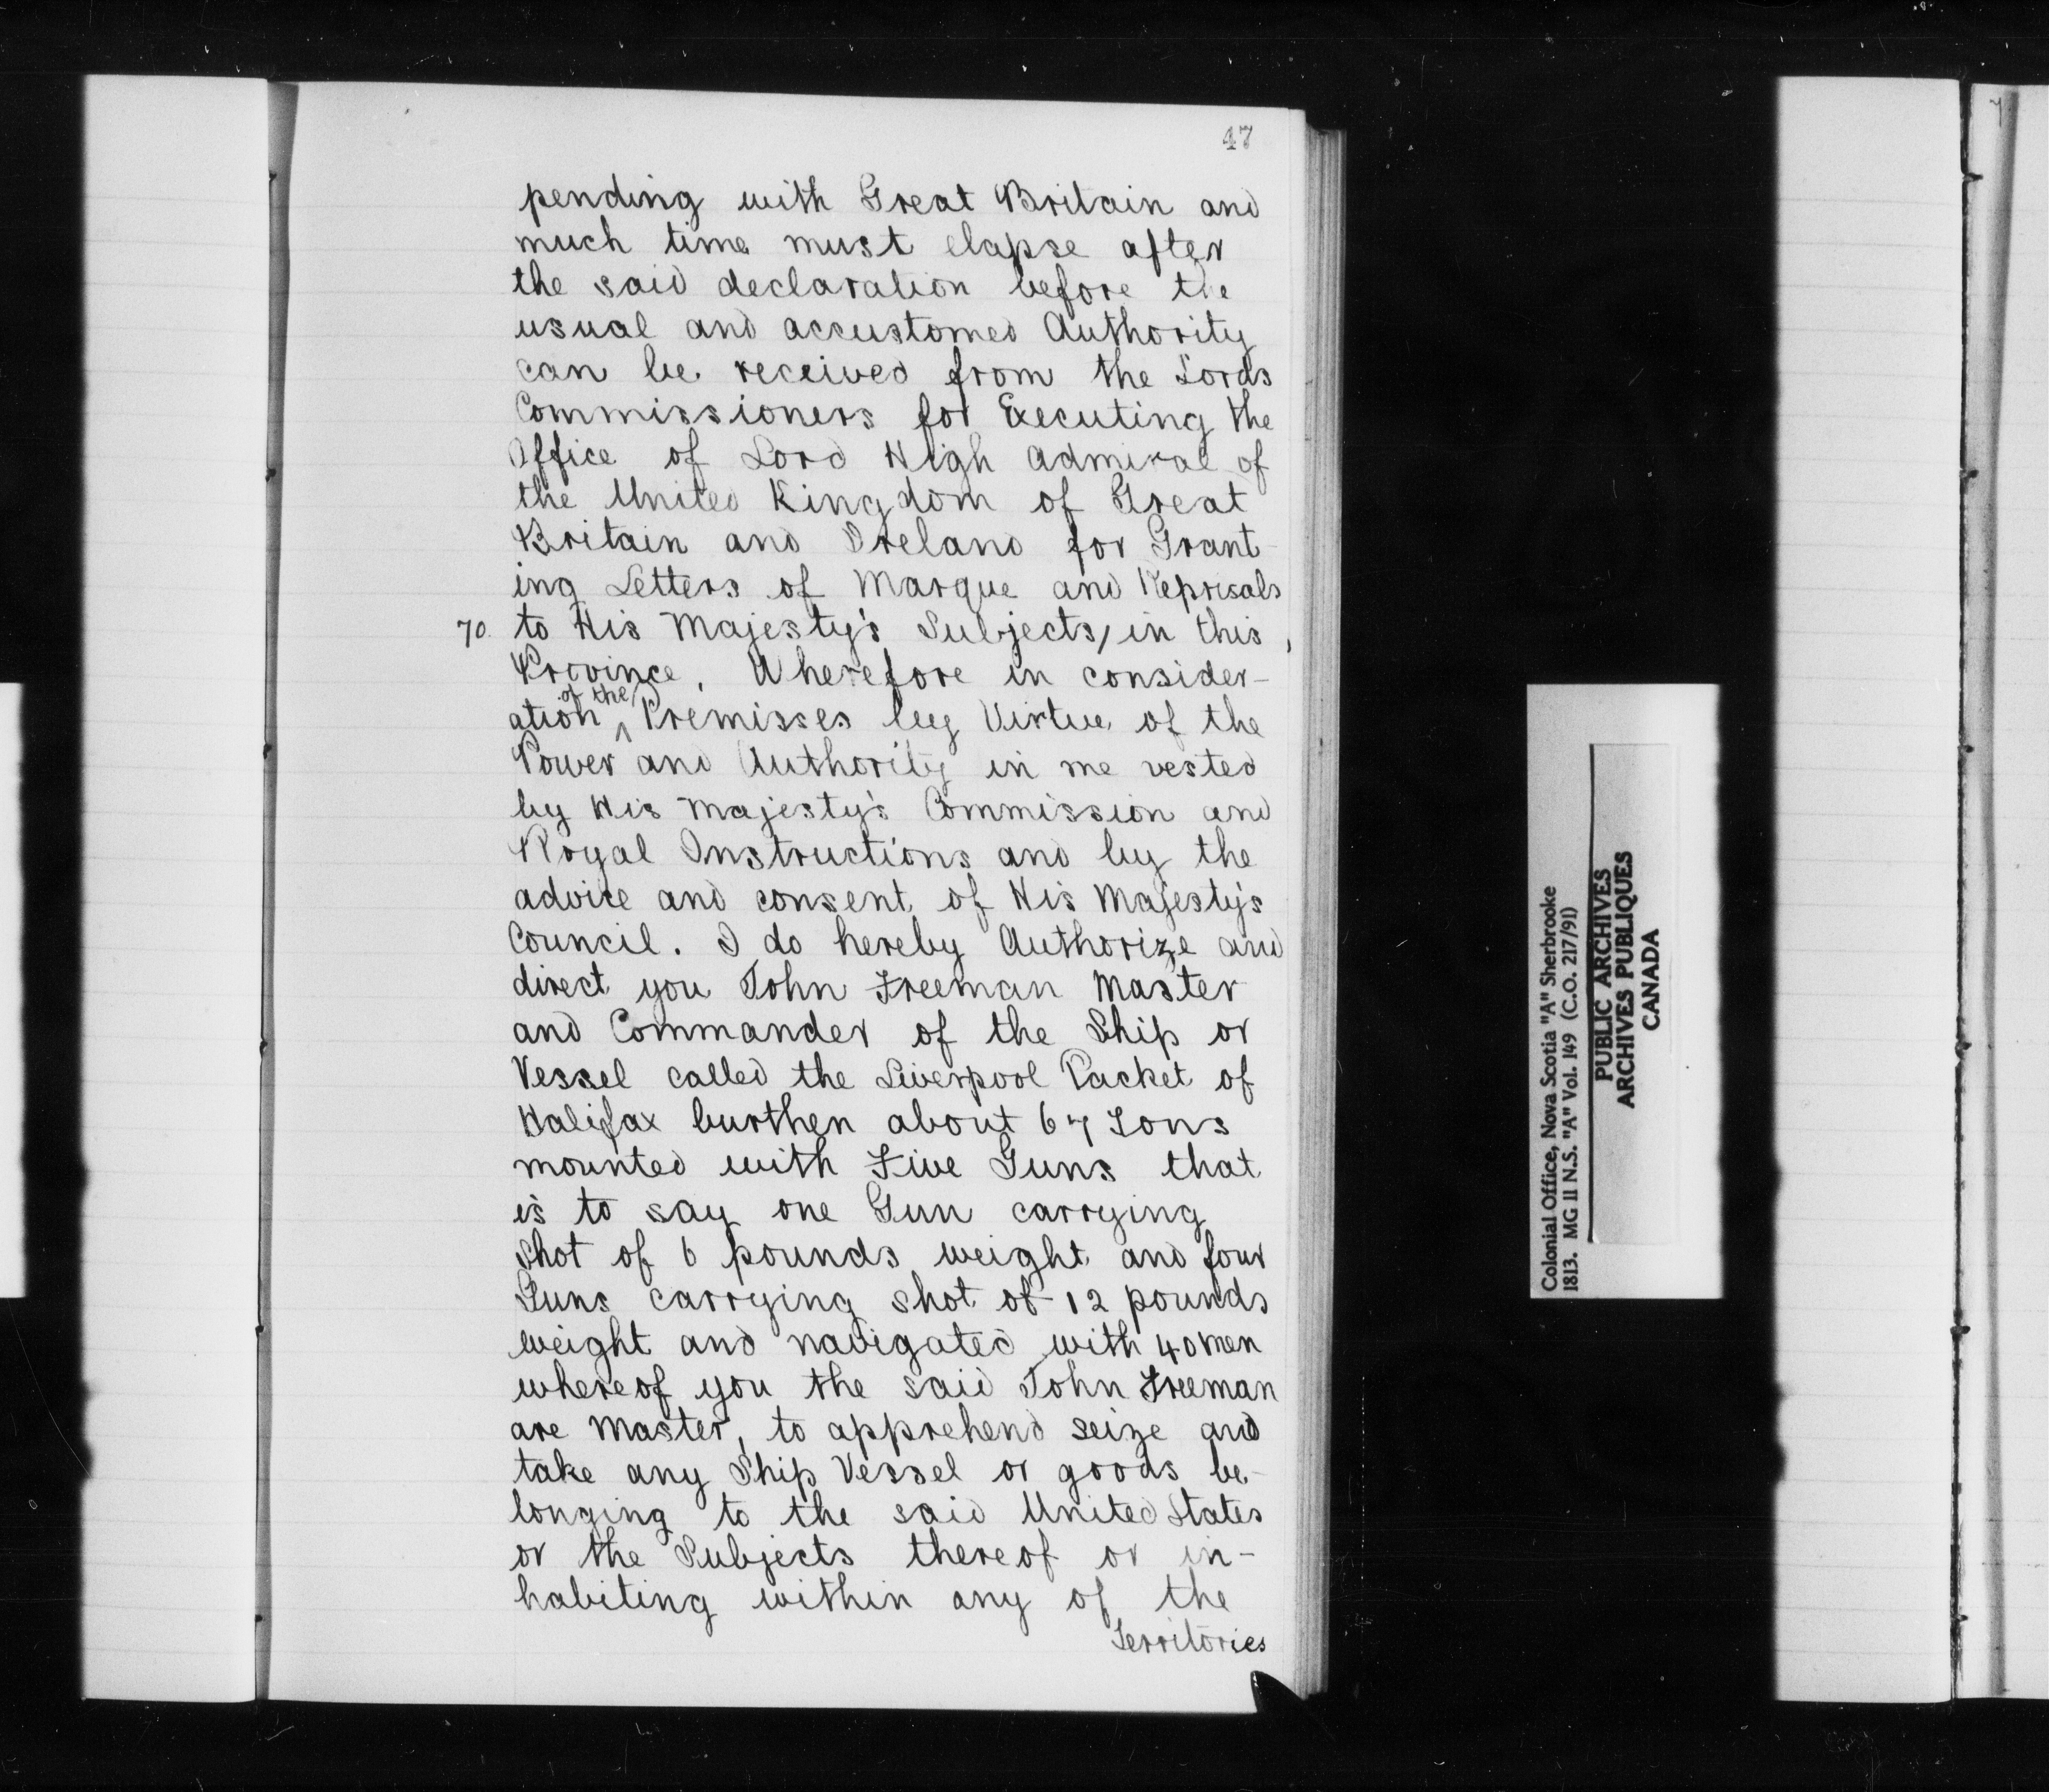 47
pending with Great Britain and
much time must elapse after
the said declaration before the
usual and accustomed Authority
can be received from the Lords
Commissioners for Executing the
Office of Lord High Admiral of
the United Kingdom of Great
Britain and Ireland for Grant-
ing Letters of Marque and Reprisals
70. to His Majesty's Subjects, in this,
Province. Wherefore in consider-
ation of the Premisses by Virtue of the
Power and Authority in me vested
by His Majesty's Commission and
Royal Instructions and by the
advice and consent of His Majesty's
Council. I do hereby Authorize and
direct you John Freeman Master
and Commander of the Ship or
Vessel called the Liverpool Packet of
Halifax burthen about 67 Tons
mounted with Five Guns that
is to say one Gun carrying
Shot of 6 pounds weight and four
Guns carrying shot of 12 pounds
weight and navigated with 40 men
whereof you the said John Freeman
are Master, to apprehend seize and
take any Ship Vessel or goods be-
longing to the said United States
or the Subjects thereof or in-
habiting within any of the
Territories
Colonial Office, Nova Scotia "A" Sherbrooke
1813. MG 11 N.S. "A" Vol. 149 (C.O. 217/91)
PUBLIC ARCHIVES
ARCHIVES PUBLIQUES
CANADA